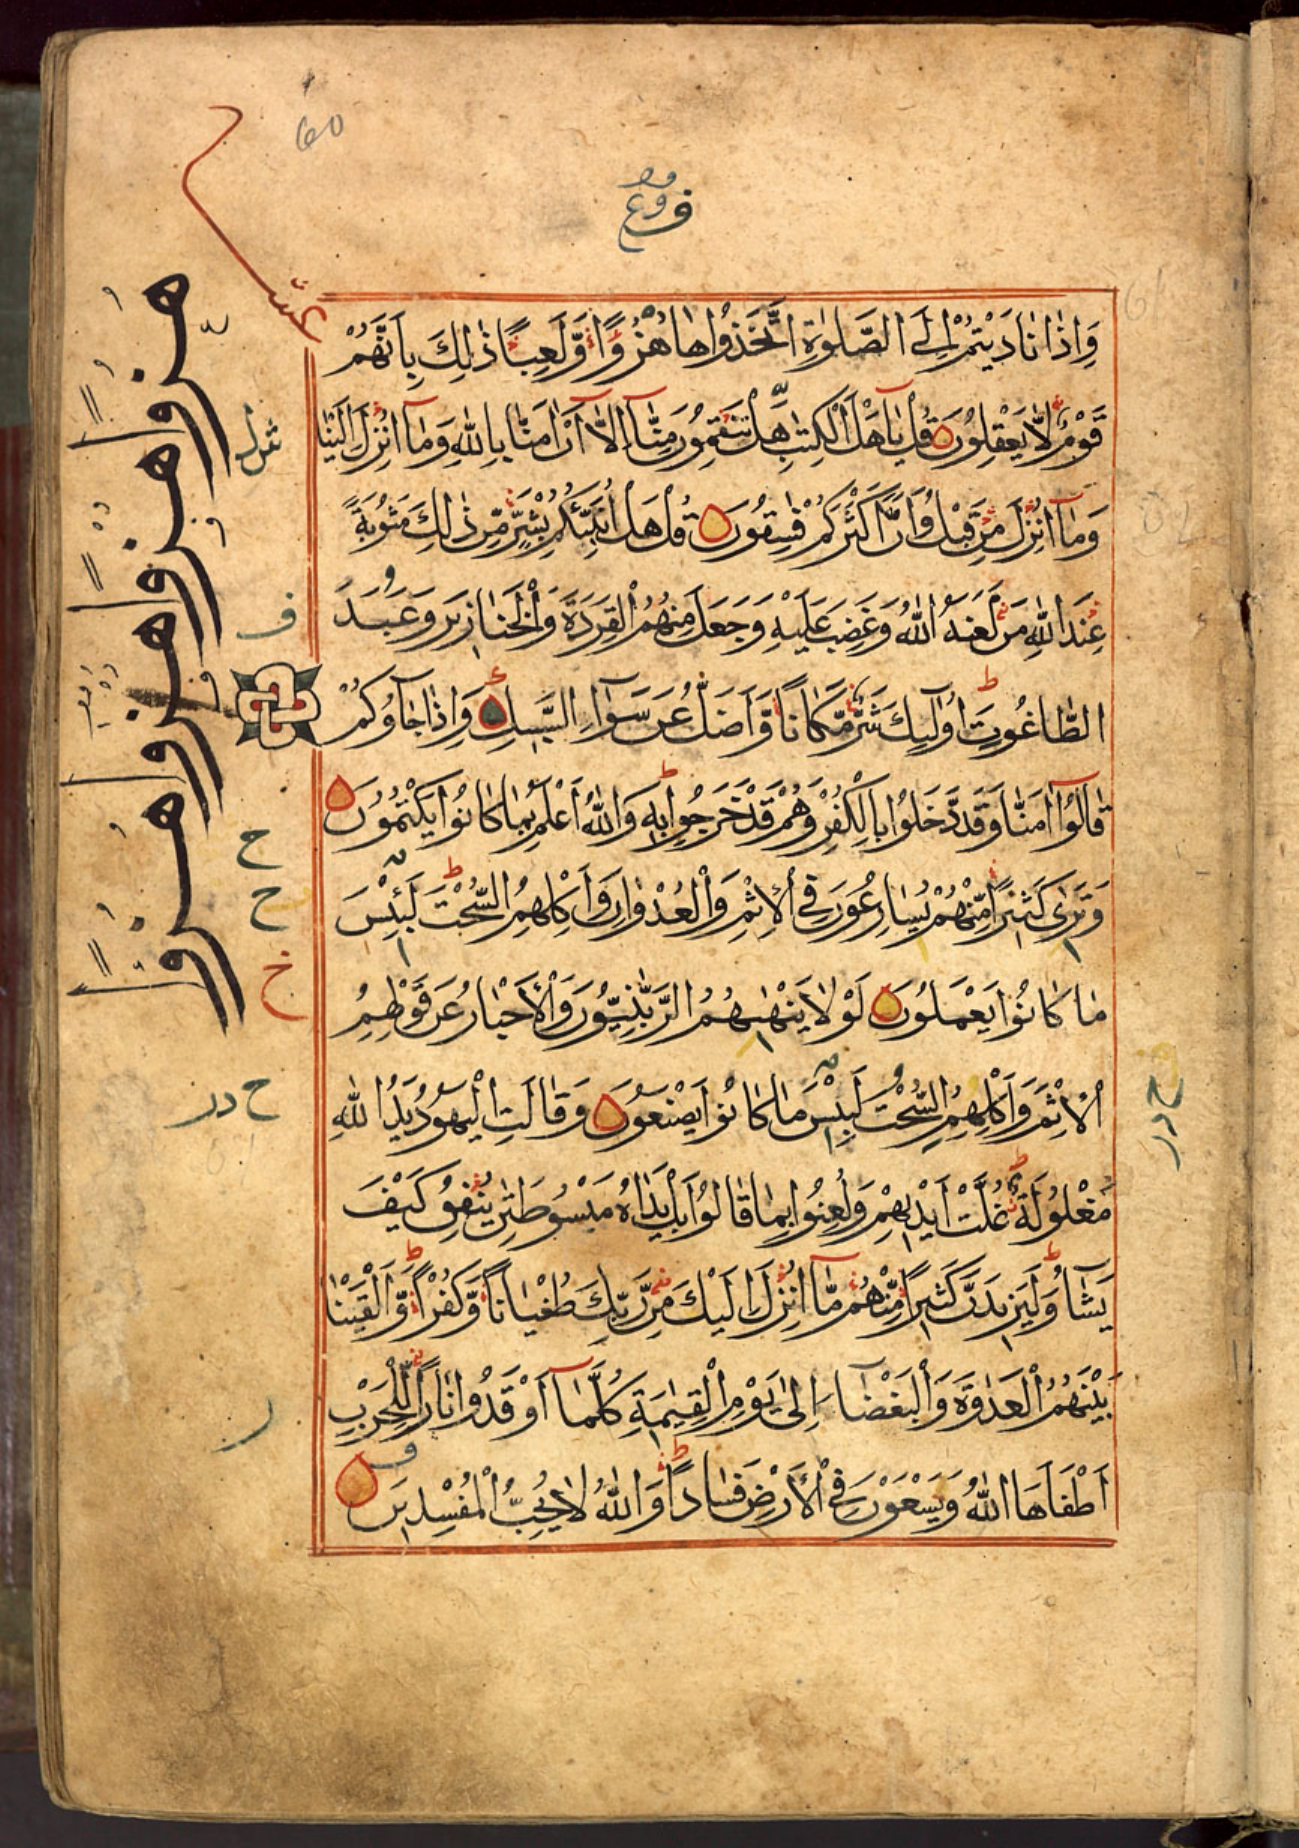 60
وَاِذَا نَادَيْتُمْ اِلَى الصَّلٰوةِ اتَّخَذُوْاهَا هُزُوًا وَّلَعِبًا ذٰلِكَ بِاَنَّهُمْ
قَوْمٌ لَّا يَعْقِلُوْنَ قُلْ يَاَهْلَ الْكِتٰبِ هَلْ تَنْقِمُوْنَ مِنَّآ اِلَّآ اَنْ اٰمَنَّا بِاللّٰهِ وَمَآ اُنْزِلَ اِلَيْنَا
وَمَآ اُنْزِلَ مِنْ قَبْلُ وَاَنَّ اَكْثَرَكُمْ فٰسِقُوْنَ قُلْ هَلْ اُنَبِّئُكُمْ بِشَرٍّ مِّنْ ذٰلِكَ مَثُوْبَةً
عِنْدَ اللّٰهِ مَنْ لَعَنَهُ اللّٰهُ وَغَضِبَ عَلَيْهِ وَجَعَلَ مِنْهُمُ الْقِرَدَةَ وَالْخَنَازِيْرَ وَعَبَدَ
الطَّاغُوْتَ اُولٰٓئِكَ شَرٌّ مَّكَانًا وَّاَضَلُّ عَنْ سَوَآءِ السَّبِيْلِ وَاِذَا جَآؤُكُمْ
قَالُوْٓا اٰمَنَّا وَقَدْ دَّخَلُوْا بِالْكُفْرِ وَهُمْ قَدْ خَرَجُوْا بِهٖ وَاللّٰهُ اَعْلَمُ بِمَا كَانُوْا يَكْتُمُوْنَ
وَتَرٰى كَثِيْرًا مِّنْهُمْ يُسَارِعُوْنَ فِى الْاِثْمِ وَالْعُدْوَانِ وَاَكْلِهِمُ السُّحْتَ لَبِئْسَ
مَا كَانُوْا يَعْمَلُوْنَ لَوْلَا يَنْهٰىهُمُ الرَّبّٰنِيُّوْنَ وَالْاَحْبَارُ عَنْ قَوْلِهِمُ
الْاِثْمَ وَاَكْلِهِمُ السُّحْتَ لَبِئْسَ مَا كَانُوْا يَصْنَعُوْنَ وَقَالَتِ الْيَهُوْدُ يَدُ اللّٰهِ
مَغْلُوْلَةٌ غُلَّتْ اَيْدِيْهِمْ وَلُعِنُوْا بِمَا قَالُوْا بَلْ يَدَاهُ مَبْسُوْطَتٰنِ يُنْفِقُ كَيْفَ
يَشَآءُ وَلَيَزِيْدَنَّ كَثِيْرًا مِّنْهُمْ مَّآ اُنْزِلَ اِلَيْكَ مِنْ رَّبِّكَ طُغْيَانًا وَّكُفْرًا وَّاَلْقَيْنَا
بَيْنَهُمُ الْعَدٰوَةَ وَالْبَغْضَآءَ اِلٰى يَوْمِ الْقِيٰمَةِ كُلَّمَآ اَوْقَدُوْا نَارًا لِّلْحَرْبِ
اَطْفَاَهَا اللّٰهُ وَيَسْعَوْنَ فِى الْاَرْضِ فَسَادًا وَاللّٰهُ لَا يُحِبُّ الْمُفْسِدِيْنَ
عشر
هزوا هزوا هزوا هزوا
ف
ح
ح
خ
ح در
ح در
ر